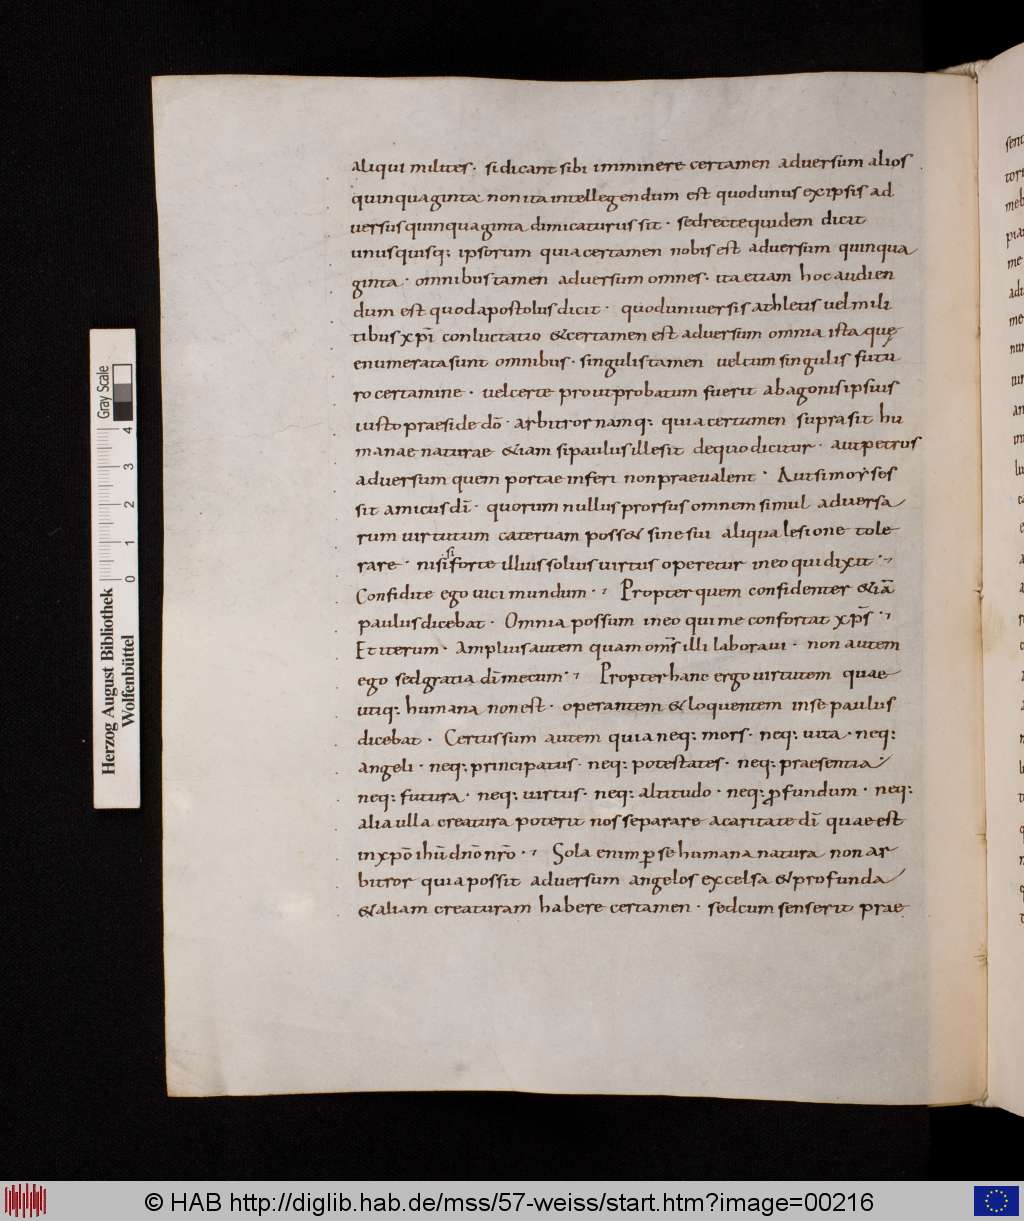 aliqui milites · si dicant sibi imminere certamen adversum alios
quinquaginta · non ita intellegendum est quod unus ex ipsis ad
versus quinquaginta dimicaturus sit · sed recte quidem dicit
unusquisq; ipsorum quia certamen nobis est adversum quinqua
ginta · omnibus tamen adversum omnes · ita etiam hoc audien
dum est quod apostolus dicit · quod universis athletis vel mili
tibus xp̄i conluctatio & certamen est adversum omnia ista quę
enumerata sunt omnibus · singulis tamen vel cum singulis futu
ro certamine · vel certe prout probatum fuerit ab agonis ipsius
iusto praeside dō · arbitror namq; quia certamen supra sit hu
manae naturae &iam si paulus ille sit de quo dicitur · aut petrus
adversum quem portae inferi non praevalent · Aut si moyses
sit amicus dī · quorum nullus prorsus omnem simul adversa
rum virtutum catervam poss& sine sui aliqua lesione tole
rare · nisi si forte illius solius virtus operetur in eo qui dixit ·
Confidite ego vici mundum · Propter quem confidenter &iā
paulus dicebat · Omnia possum in eo qui me confortat xp̄s ·
Et iterum · Amplius autem quam om̄s illi laboravi · non autem
ego sed gratia dī mecum · Propter hanc ergo virtutem quae
utiq; humana non est · operantem & loquentem in se paulus
dicebat · Certus sum autem quia neq; mors · neq; vita · neq;
angeli · neq; principatus · neq; potestates · neq; praesentia ·
neq; futura · neq; virtus · neq; altitudo · neq; ꝓfundum · neq;
alia ulla creatura poterit nos separare a caritate dī quae est
in xp̄o ihū dn̄o nr̄o · Sola enim ꝑ se humana natura non ar
bitror quia possit adversum angelos excelsa & profunda
& aliam creaturam habere certamen · sed cum senserit prae
Herzog August Bibliothek
Wolfenbüttel
0 1 2 3 4
Gray Scale
© HAB http://diglib.hab.de/mss/57-weiss/start.htm?image=00216